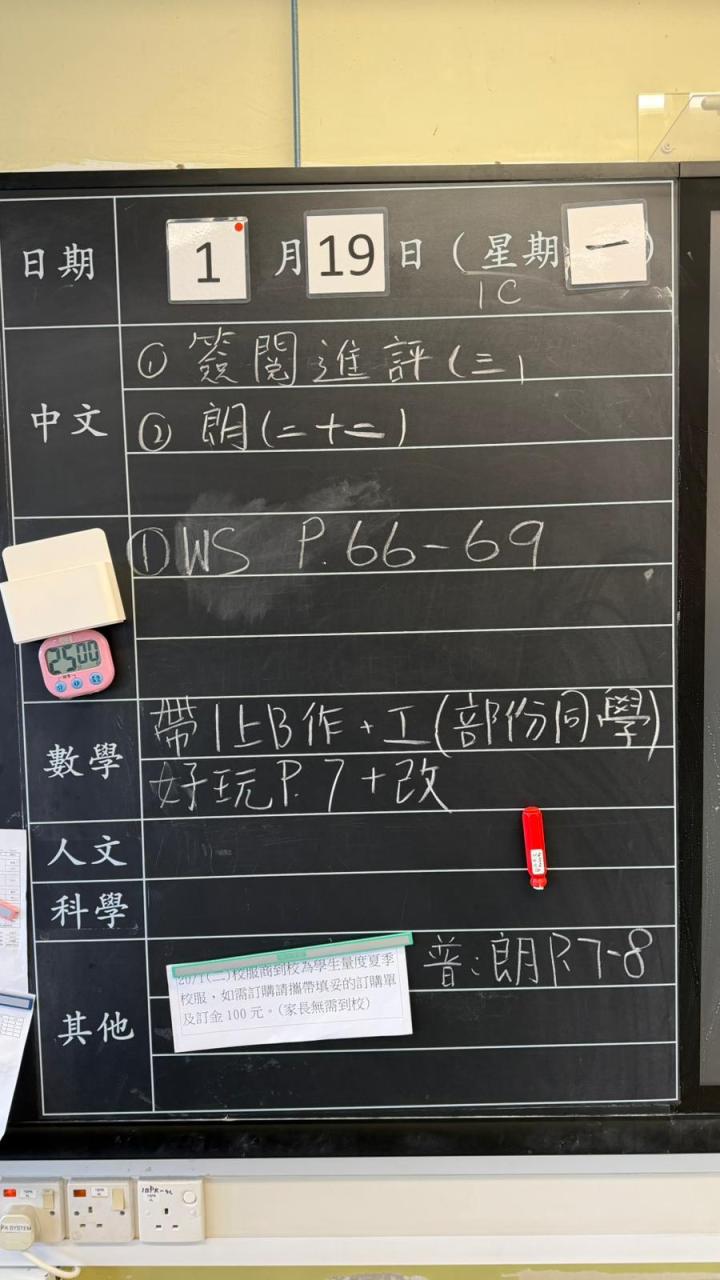 日期 1 月 19 日 (星期 一 )
1C
中文 ① 簽閱進評(三)
② 朗(二十二)
① WS P. 66-69
25 00
數學 帶1上B作+工(部份同學)
好玩P.7+改
人文
科學
其他 普:朗P.7-8
20/1(二)校服商到校為學生量度夏季
校服,如需訂購請攜帶填妥的訂購單
及訂金100元。(家長無需到校)
PA SYSTEM